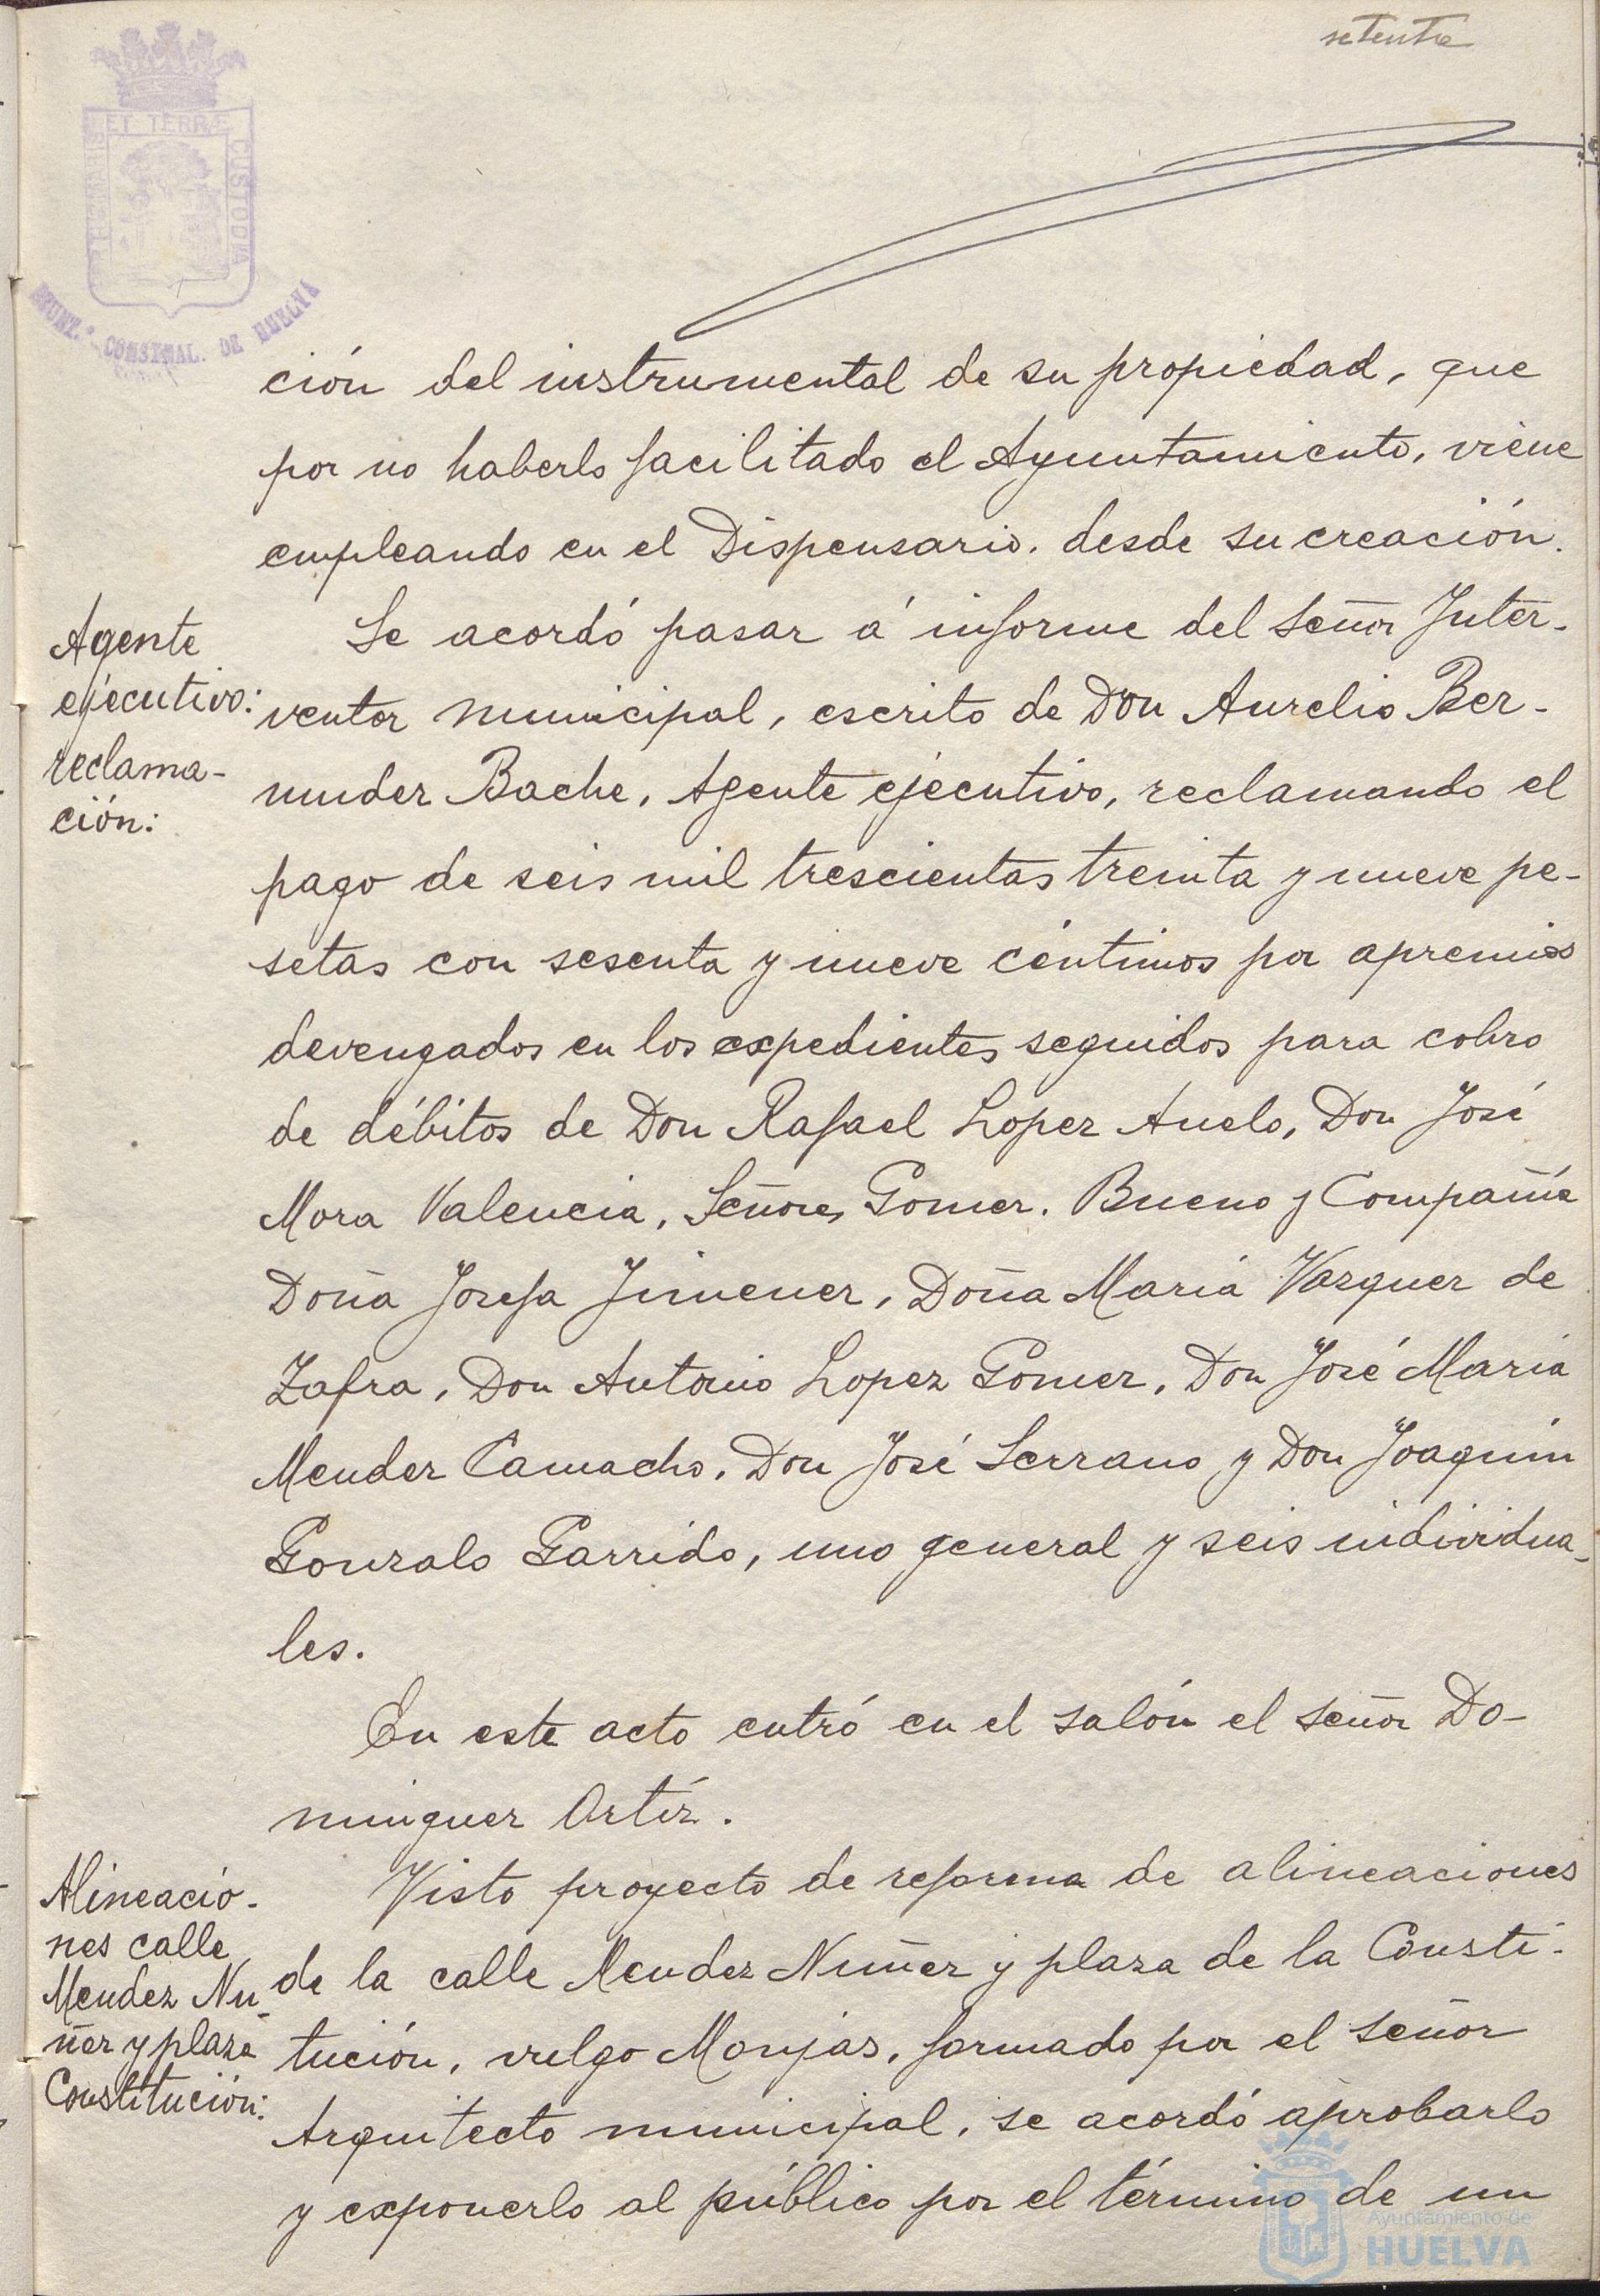 setenta
ET TERRÆ
CUSTODIA
DE HUELVA
ción del instrumental de su propiedad, que
por no haberlo facilitado el Ayuntamiento, viene
empleando en el Dispensario, desde su creación.
Agente
ejecutivo:
reclama-
ción:
Se acordó pasar á informe del señor Inter-
ventor municipal, escrito de Don Aurelio Ber-
mudez Bache, Agente ejecutivo, reclamando el
pago de seis mil trescientas treinta y nueve pe-
setas con sesenta y nueve céntimos por apremios
devengados en los expedientes seguidos para cobro
de débitos de Don Rafael Lopez Anelo, Don José
Mora Valencia, Señores Gomez, Bueno y Compañía
Doña Josefa Jimenez, Doña Maria Vazquez de
Zafra, Don Antonio Lopez Gomez, Don José Maria
Mendez Camacho, Don José Serrano y Don Joaquin
Gonzalo Garrido, uno general y seis individua-
les.
En este acto entró en el salón el señor Do-
minguez Ortíz.
Alineacio-
nes calle
Mendez Nu-
ñez y plaza
Constitución:
Visto proyecto de reforma de alineaciones
de la calle Mendez Nuñez y plaza de la Consti-
tución, vulgo Monjas, formado por el señor
Arquitecto municipal, se acordó aprobarlo
y exponerlo al público por el término de un
Ayuntamiento de
HUELVA